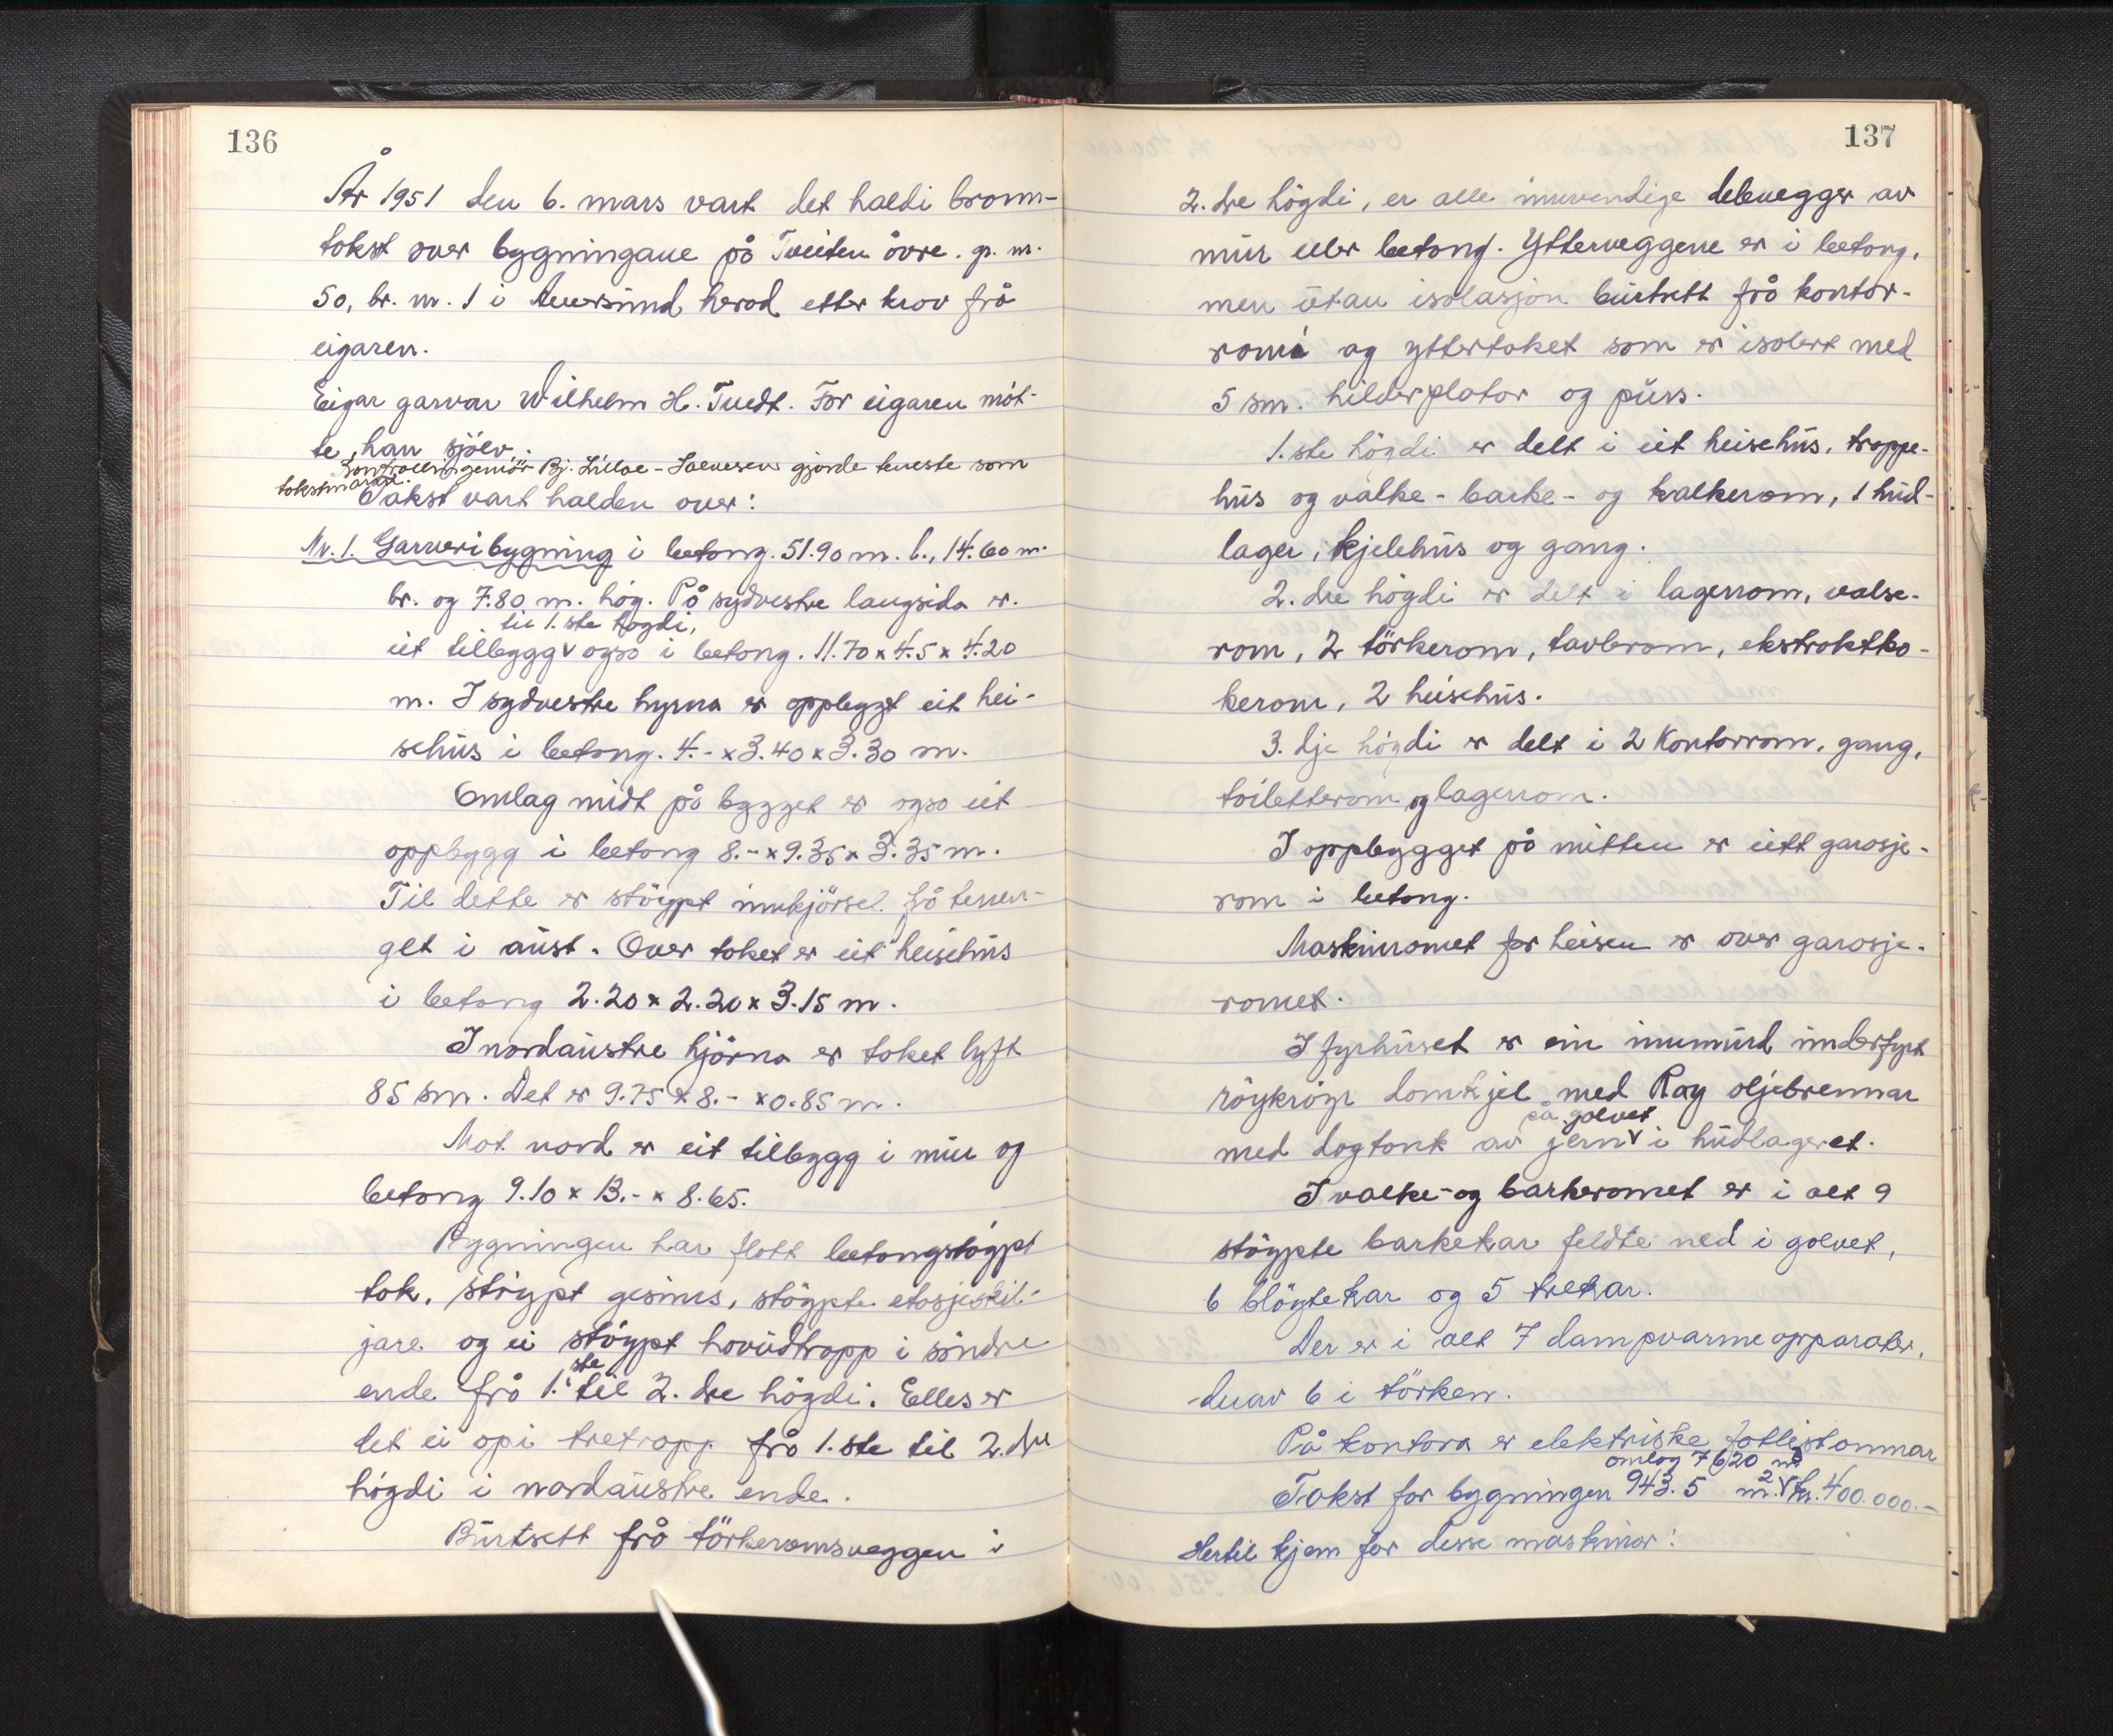 136
År 1951 den 6. mars vart det haldi brann-
takst over bygningane på Tveiten övre. gr. nr.
50, br. nr. 1 i herad etter krav frå
eigaren.
Eigar garvar Wilhelm H. Tvedt. For eigaren möt-
te han sjölv.
Kontrollingeniör Bj. Lillae-Salvesen gjorde teneste som
takstmann.
Takst vart halden over:
Nr. 1. Garveribygning i betong. 51.90 m. l., 14.60 m.
br. og 7.80 m. hög. På sydvestre langsida er
til 1.ste högdi,
eit tilbygg v også i betong. 11.70 x 4.5 x 4.20
m. I sydvestre hyrna er oppbygt eit hei-
sehus i betong. 4.- x 3.40 x 3.30 m.
Omlag midt på bygget er også eit
oppbygg i betong 8.- x 9.35 x 3.35 m.
Til dette er stöypt innkjörsel frå terren-
get i aust. Over taket er eit heisehus
i betong 2.20 x 2.20 x 3.15 m.
I nordaustre hjörna er taket lyft
85 sm. Det er 9.75 x 8.- x 0.85 m.
Mot nord er eit tilbygg i mur og
betong 9.10 x 13.- x 8.65.
Bygningen har flatt betongstöypt
tak, stöypt gesims, stöypte etasjeskil-
jare og ei stöypt hovudtrapp i söndre
ste
ende frå 1. til 2. dre högdi. Elles er
det ei opi tretrapp frå 1.ste til 2. dre
högdi i nordaustre ende.
Burtsett frå törkeromsveggen i
137
2. dre högdi, er alle innvendige delevegger av
mur eller betong. Ytterveggene er i betong,
men utan isolasjon burtsett frå kontor-
romi og yttertaket som er isolert med
5 sm. hilderplator og puss.
1.ste högdi er delt i eit heisehus, trappe-
hus og valke- barke- og kalkerom, 1 hud-
lager, kjelehus og gang.
2. dre högdi er delt i lagerrom, valse-
rom, 2 törkerom, tavlerom, ekstraktko-
kerom, 2 heisehus.
3. dje högdi er delt i 2 Kontorrom, gang,
toiletterom og lagerrom.
I oppbygget på mitten er eitt garasje-
rom i betong.
Maskinromet for heisen er over garasje-
romet.
I fyrhuset er ein innmurd underfyrt
röykröyr damkjel med Ray oljebrennar
på golvet
med dagtank av jern v i hudlageret.
I valke- og barkeromet er i alt 9
stöypte barkekar feldte ned i golvet,
6 blöytekar og 5 trekar.
Der er i alt 7 dampvarmeapparater,
derav 6 i törken.
På kontora er elektriske fotlistomnar
omlag 7620 m³
Takst for bygningen 943.5 m.² v kr. 400.000.-
Hertil kjem for desse maskinor: